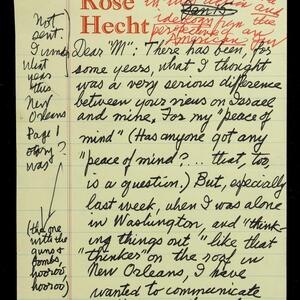 Rose
Hecht
reactions and
ideations from the
perspective an
American Jew
Jan 15
Not
sent.
I wonder
what
year
this
New
Orleans
Page 1
story
was?
(the one
with the
guns &
bombs,
hooroo,
hooroo)
Dear "M": There has been, for
some years, what I thought
was a very serious difference
between your views on Israel
and mine. For my "peace of
mind" (Has anyone got any
"peace of mind?... that, too,
is a question.) But, especially
last week, when I was alone
in Washington, and "think-
ing things out" like that
"thinker" on the roof in
New Orleans, I have
wanted to communicate